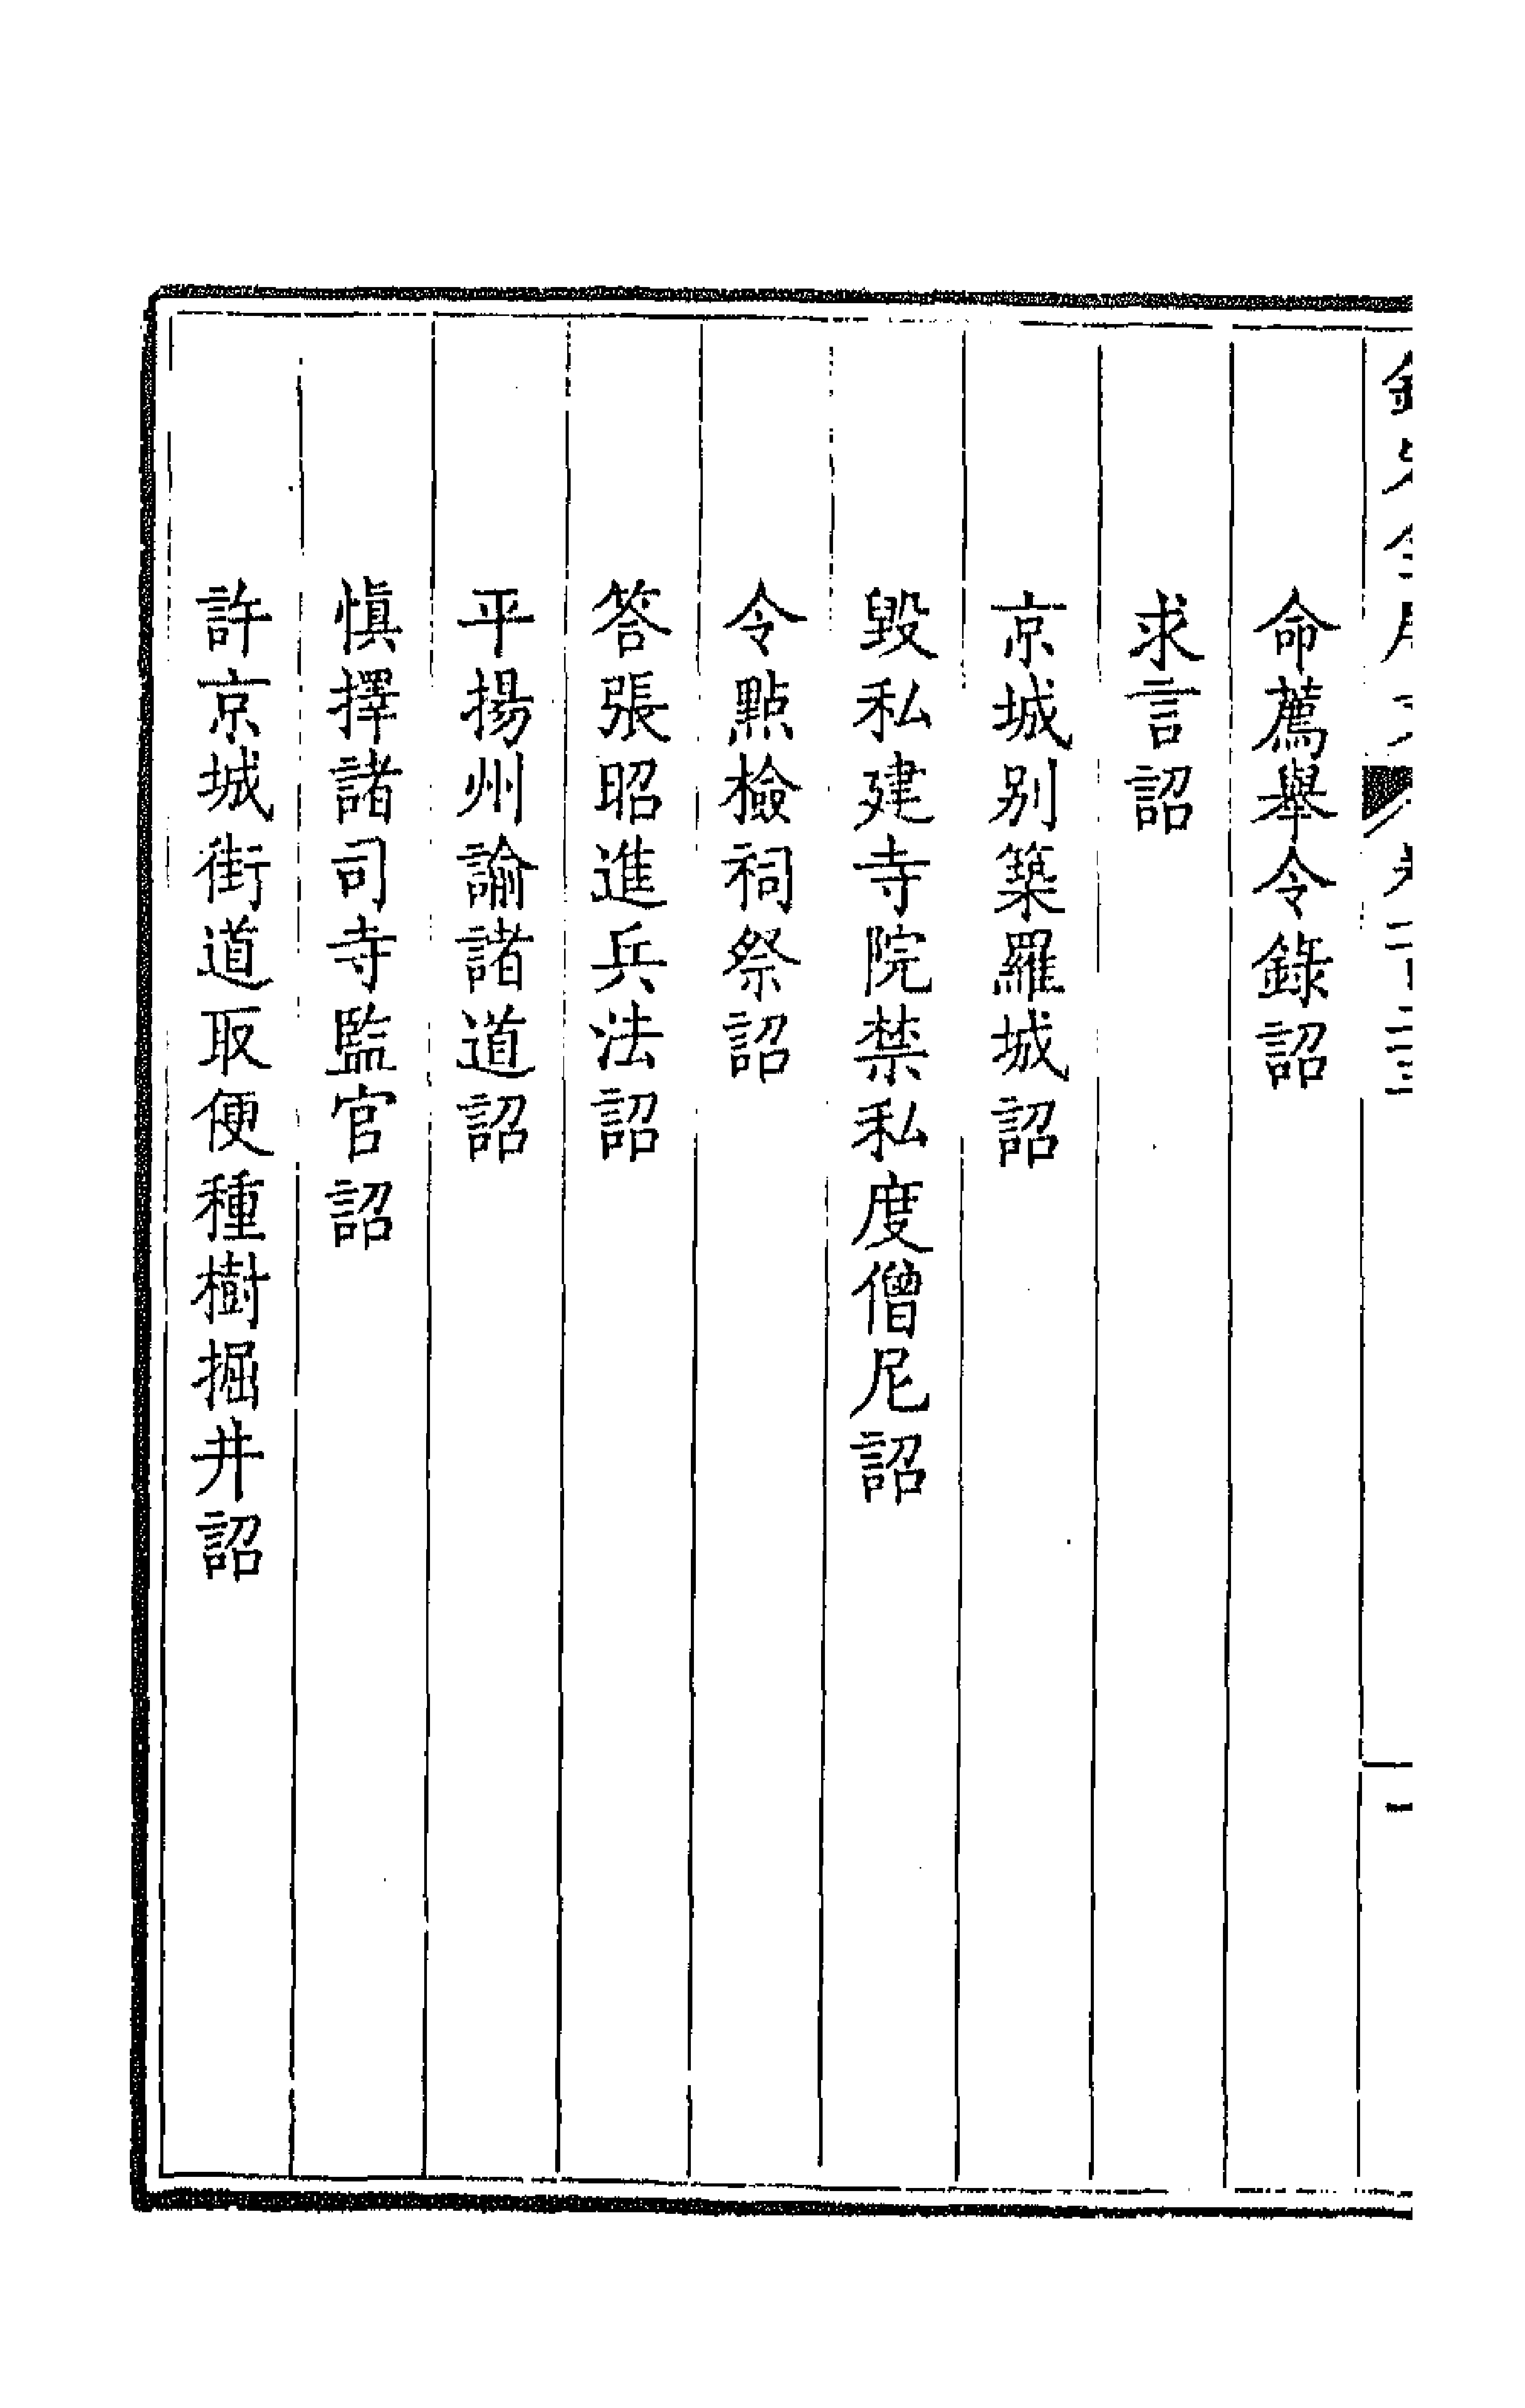 命薦舉令錄詔
求言詔
京城别築羅城詔
毀私建寺院禁私度僧尼詔
令點檢祠祭詔
答張昭進兵法詔
平揚州諭諸道詔
慎擇諸司寺監官詔
許京城街道取便種樹掘井詔